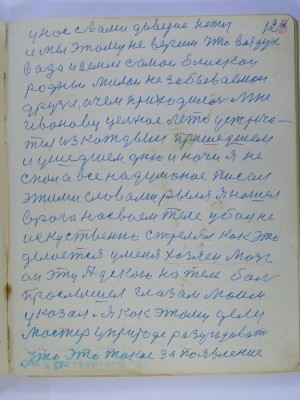 128
у нас с вами доверие нету
и мы этому не верим что воздух
вода и земля самой близкой
родны милои не забываемои
друзи, очем приходилос мне
Иванову ценное лето устреча
ти из каждым пришедшем
и ушедшем дню и ночи я не
спол а все надуманое писал
этими словами рылся я нашел
врага на своем теле убил не
искуственно стрелял как это
делается у меня хозяен мозг
он эту Адскою на теле бол
прослышел глазам моим
указал. Я как этому делу
мастер у природе разузновать
что это такое за появление